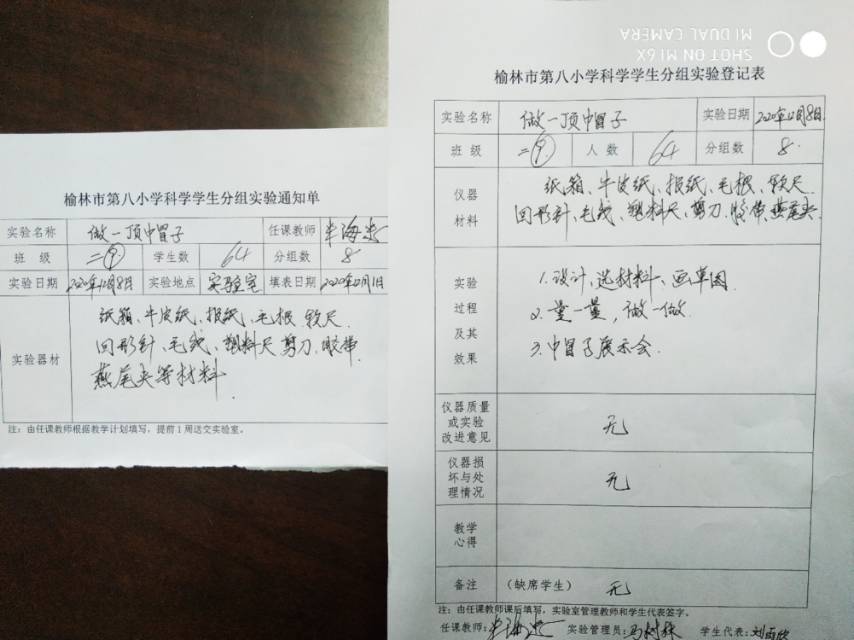 榆林市第八小学科学学生分组实验通知单
实验名称 做一顶帽子 任课教师
班 级 二(9) 学生数 64 分组数 8
实验日期 2020年12月8日 实验地点 实验室 填表日期 2020年12月1日
实验器材
纸箱、牛皮纸、报纸、毛根、软尺
回形针、毛线、塑料尺、剪刀、胶带
燕尾夹等材料
注:由任课教师根据教学计划填写,提前1周送交实验室。
SHOT ON MI 6X
MI DUAL CAMERA
榆林市第八小学科学学生分组实验登记表
实验名称 做一顶帽子 实验日期 2020年12月8日
班 级 二(9) 人 数 64 分组数 8
仪器材料
纸箱、牛皮纸、报纸、毛根、软尺
回形针、毛线、塑料尺、剪刀、胶带、燕尾夹
实验过程及其效果
1.设计、选材料、画草图
2.量一量,做一做
3.帽子展示会.
仪器质量或实验改进意见 无
仪器损坏与处理情况 无
教学心得
备注 (缺席学生) 无
注:由任课教师课后填写,实验室管理教师和学生代表签字。
任课教师: 实验管理员: 学生代表: